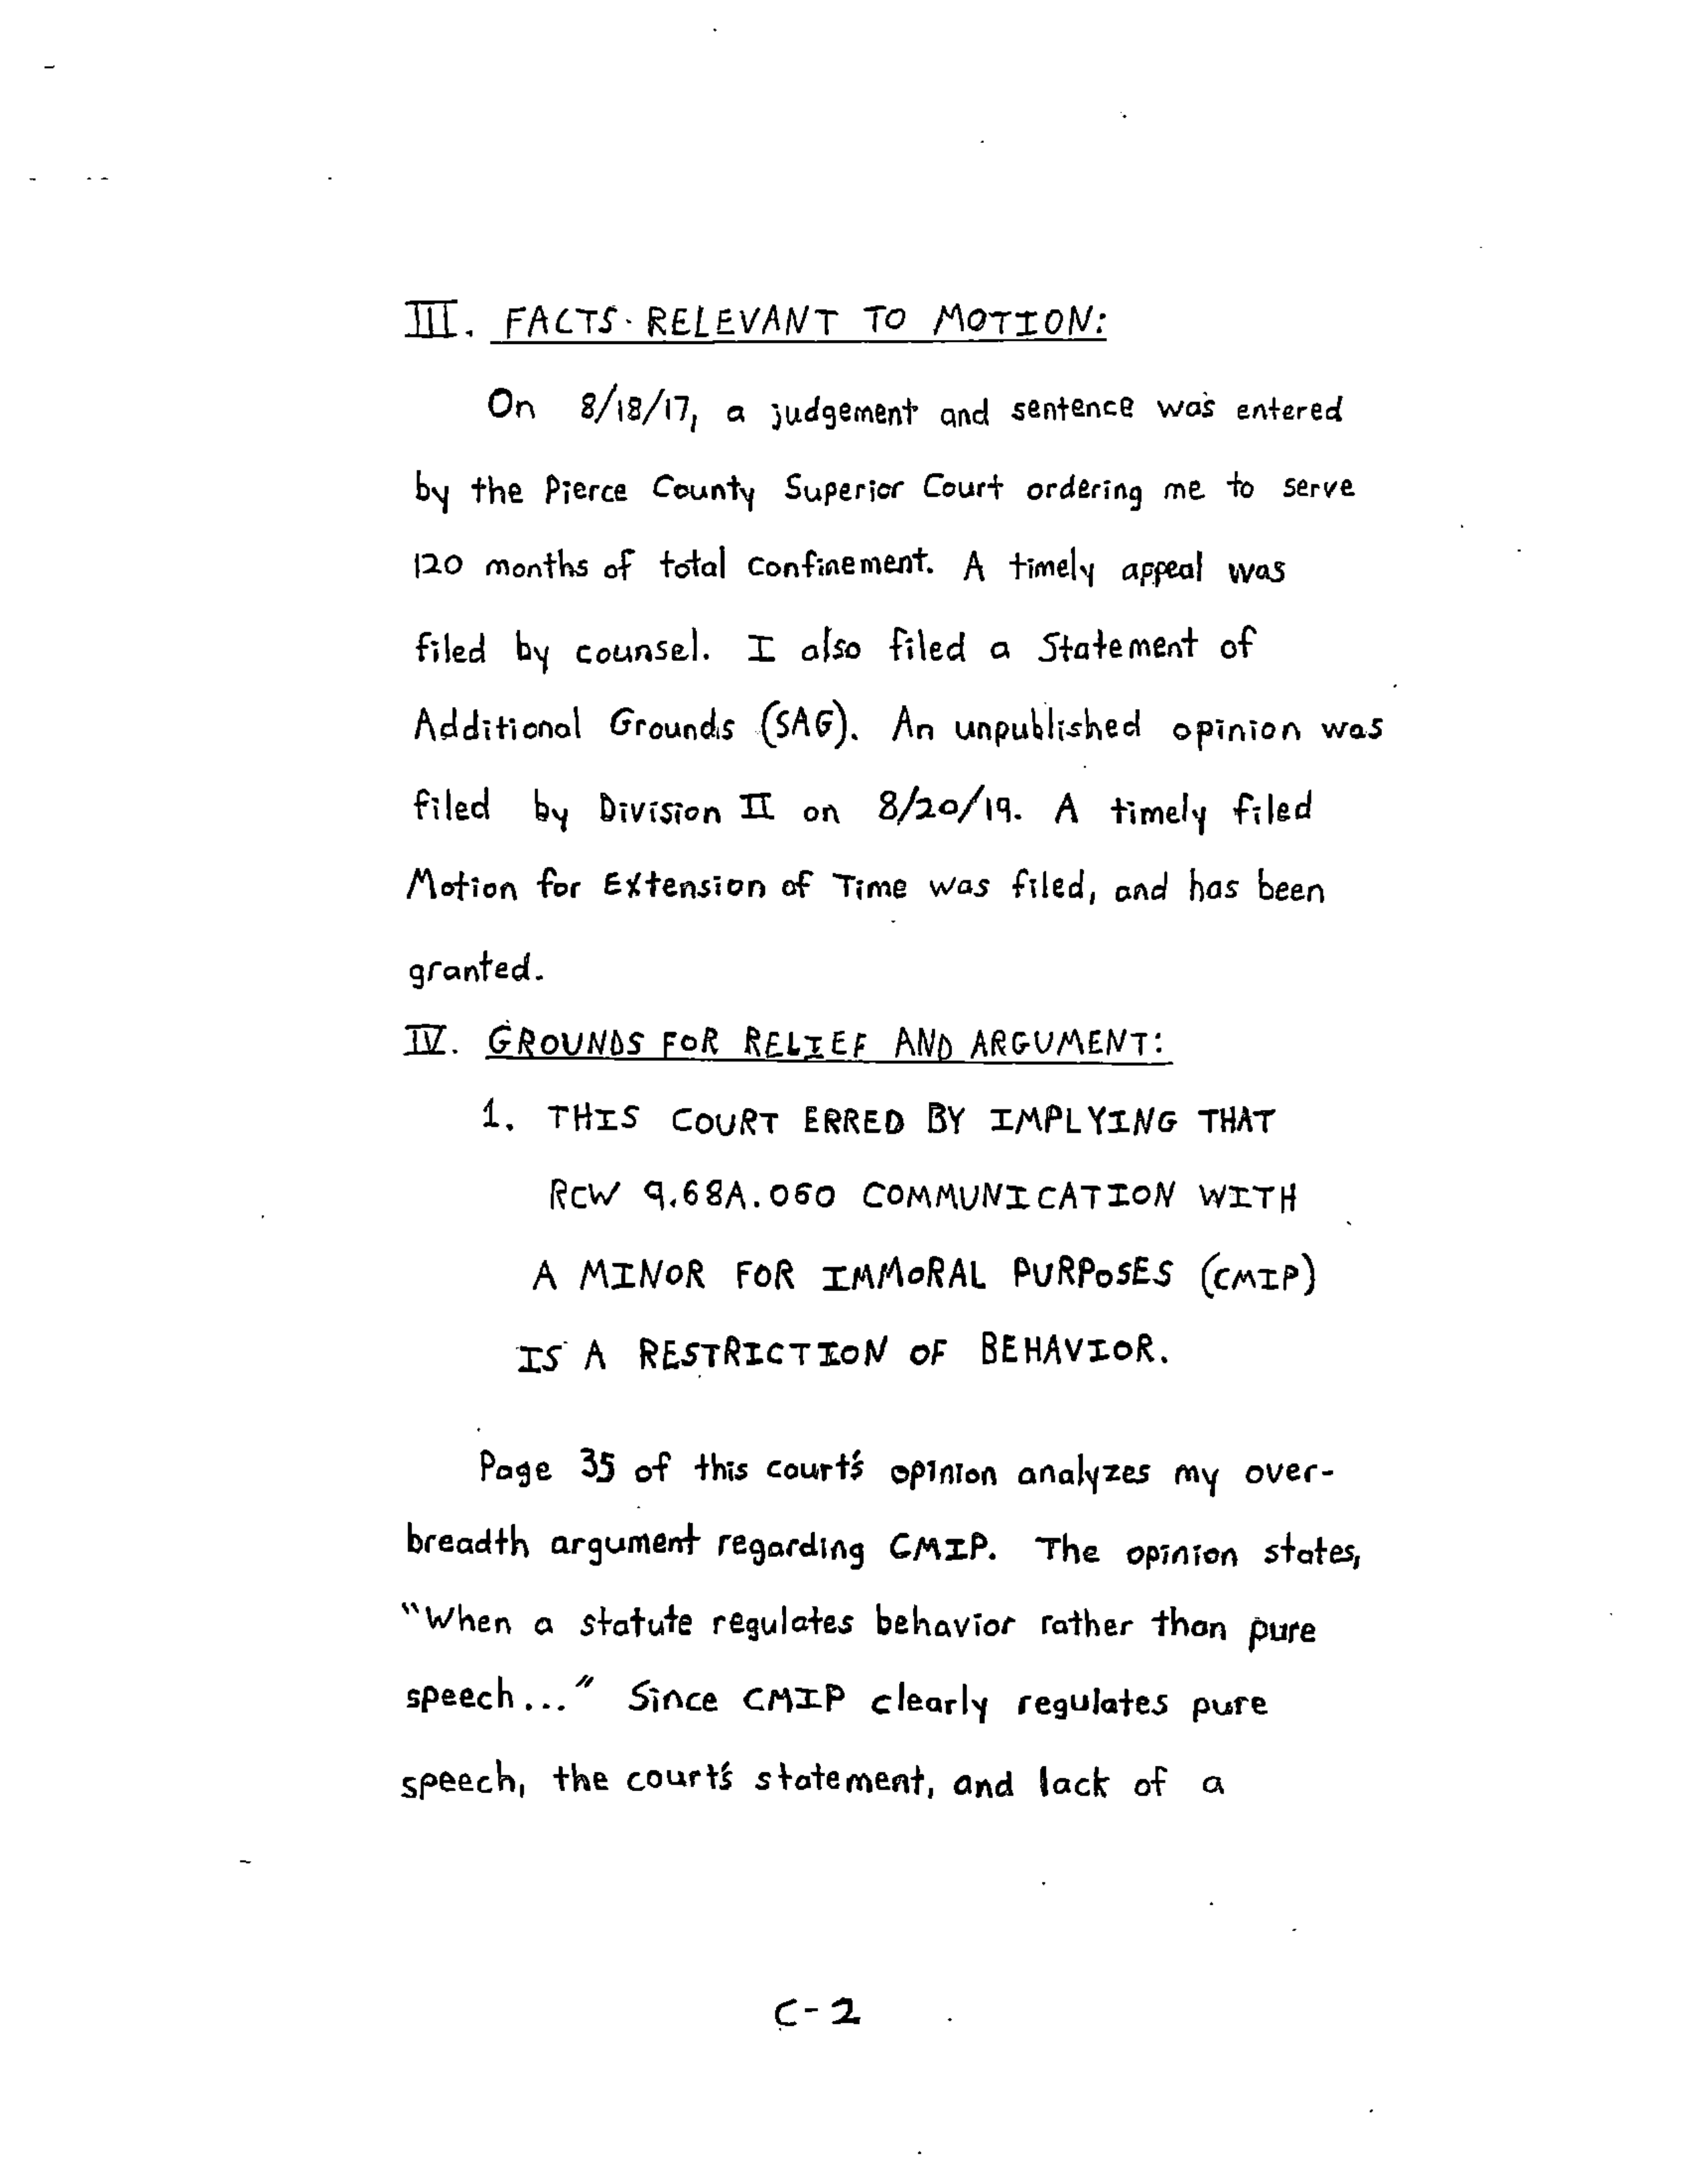 III. FACTS RELEVANT TO MOTION:
On 8/18/17, a judgement and sentence was entered
by the Pierce County Superior Court ordering me to serve
120 months of total confinement. A timely appeal was
filed by counsel. I also filed a Statement of
Additional Grounds (SAG). An unpublished opinion was
filed by Division II on 8/20/19. A timely filed
Motion for Extension of Time was filed, and has been
granted.
IV. GROUNDS FOR RELIEF AND ARGUMENT:
1. THIS COURT ERRED BY IMPLYING THAT
RCW 9.68A.060 COMMUNICATION WITH
A MINOR FOR IMMORAL PURPOSES (CMIP)
IS A RESTRICTION OF BEHAVIOR.
Page 35 of this court's opinion analyzes my over-
breadth argument regarding CMIP. The opinion states,
"When a statute regulates behavior rather than pure
speech..." Since CMIP clearly regulates pure
speech, the court's statement, and lack of a
C-2